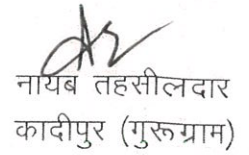 नायब तहसीलदार
कादीपुर (गुरूग्राम)